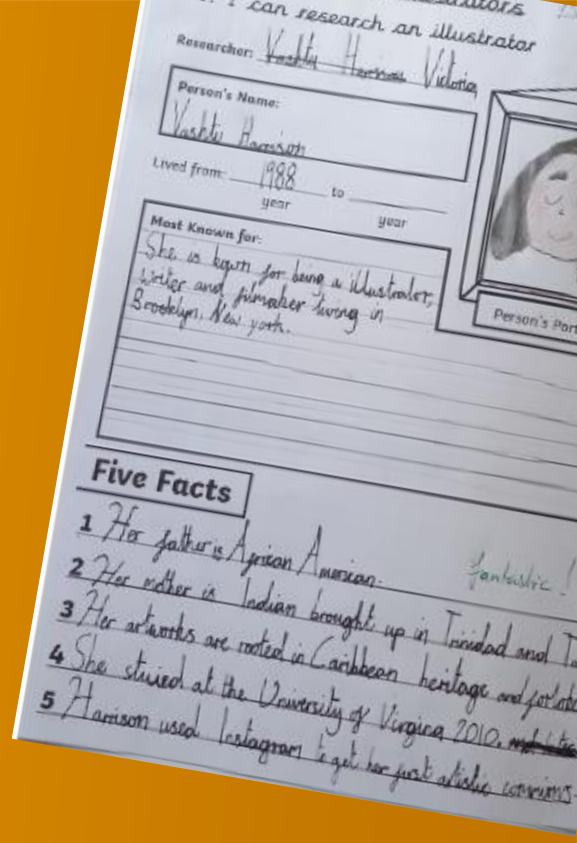 I can research an illustrator
Researcher: Vashty Harrison Victoria
Person's Name:
Vashti Harrison
Lived from: 1988 to
year year
Most Known for:
She is kown for being a illustrator,
writer and filmaker living in
Brooklyn, New york.
Person's Port
Five Facts
1 Her father is African American.
fantastic!
2 Her mother is Indian brought up in Trinidad and To
3 Her artworks are rooted in Caribbean heritage and
4 She stuied at the University of Virginia 2010.
5 Harrison used Instagram to get her first artistic